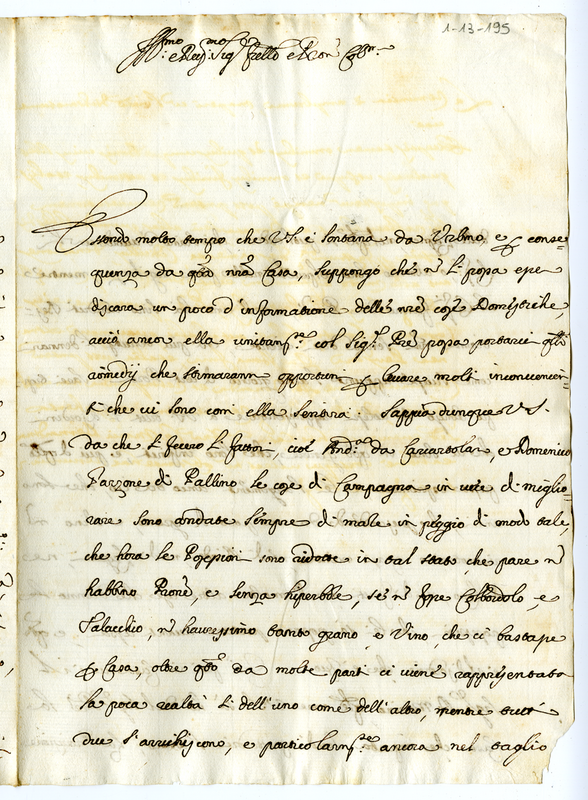 1-13-195
Ill.mo e Rev.mo Sig.r Frello e Pron Col.mo
Essendo molto tempo che V.S. è lontana da Urbino, e p conse=
quenza da q.sta nra Casa, suppongo che n li possa esser
discara un poco d'informatione delle nre cose Domestiche,
acciò ancor ella unitam.te col Sig.r Pre possa portarci q.lli
rimedij che stimarann opportuni p levare molti inconvenien=
ti che vi sono com ella sentirà. Sappia dunque V.S.
da che si fecero li fattori, cioè da , e Domenico
Garzone di Pallino le cose di Campagna in vece di miglio=
rare sono andate sempre di male in peggio di modo tale,
che hora le Possessioni sono ridotte in tal stato, che pare n
habbino Prone, e senza hiperbole, se n fosse Colbordolo, e
Talacchio, n haveressimo tanto grano, e Vino, che ci bastasse
p Casa, oltre q.sto da molte parti ci viene rappresentata
la poca realtà sì dell'uno come dell'altro, mentre tutti
due s'arrichiscono, e particolarm.te ancora nel taglio